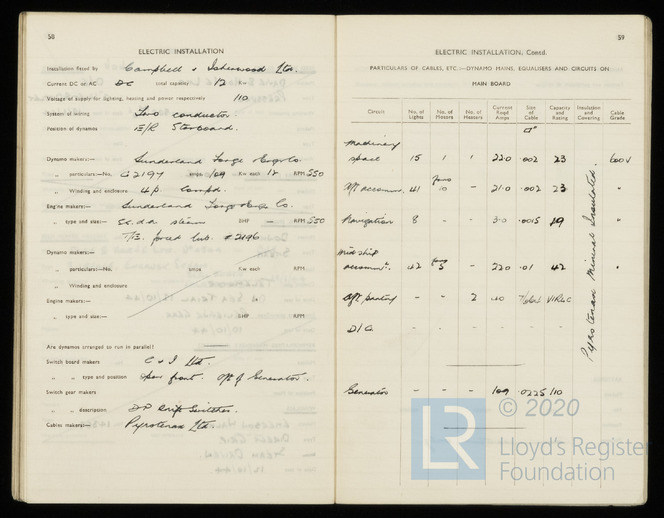 58
ELECTRIC INSTALLATION
Installation fitted by Campbell & Isherwood Ltd.
Current DC or AC DC total capacity 12 Kw
Voltage of supply for lighting, heating and power respectively 110
System of wiring Two conductor.
Position of dynamos E/R Starboard.
Dynamo makers:— Sunderland Forge & Engs Co.
„ particulars:—No. G2197 amps 109 Kw each 12 RPM 550
„ Winding and enclosure 4P. Compd.
Engine makers:— Sunderland Forge & Eng. Co.
„ type and size:— steam BHP — RPM 550
forced lub. # 2196
Dynamo makers:—
„ particulars:—No. amps Kw each RPM
„ Winding and enclosure
Engine makers:—
„ type and size:— BHP RPM
Are dynamos arranged to run in parallel?
Switch board makers C & I Ltd.
„ „ type and position Open front. Aft of Generator.
Switch gear makers
„ „ description DP Knife Switches.
Cables makers:— Pyrotenax Ltd.
59
ELECTRIC INSTALLATION, Contd.
PARTICULARS OF CABLES, ETC.:—DYNAMO MAINS, EQUALISERS AND CIRCUITS ON
MAIN BOARD
Circuit No. of Lights No. of Motors No. of Heaters Current Reqd Amps Size of Cable Capacity and Rating Insulation and Covering Cable Grade
□"
Machinery
space 15 1 1 22.0 .002 23 600V
Aft accomm. 41 fans 10 — 21.0 .002 23 "
Navigation 8 — — 3.0 .0015 19 "
Midship
accommn. 42 fans 5 — 22.0 .01 42 "
Aft pantry — — 2 7/.064 VIR LC
D/G
Generator — — — 109 .0225 110
Pyrotenax Mineral Insulated.
LR © 2020
Lloyd's Register
Foundation